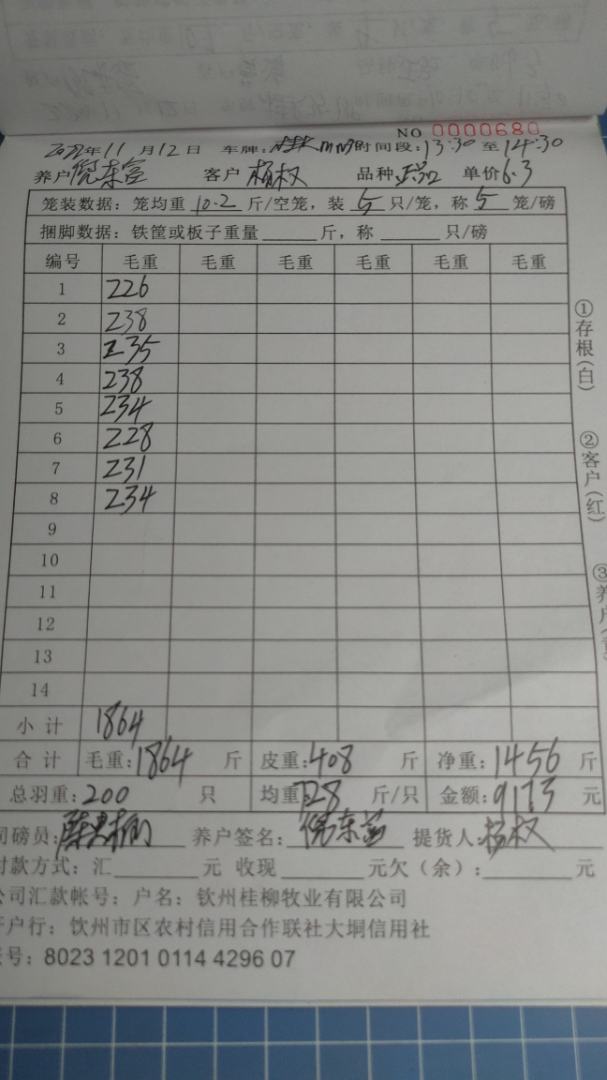 NO 0000680
年11月12日 车牌: 时间段:13:30至14:30
养户 客户 杨权 品种 正品 单价6.3
笼装数据:笼均重10.2斤/空笼,装5只/笼,称5笼/磅
捆脚数据:铁筐或板子重量____斤,称____只/磅
编号 毛重 毛重 毛重 毛重 毛重 毛重
1 226
2 238
3 235
4 238
5 234
6 228
7 231
8 234
9
10
11
12
13
14
小计 1864
合计 毛重:1864斤 皮重:408斤 净重:1456斤
总羽重:200只 均重:7.28斤/只 金额:9173元
司磅员: 养户签名: 提货人:杨权
付款方式:汇____元 收现____元欠(余):____元
公司汇款帐号:户名:钦州桂柳牧业有限公司
开户行:钦州市区农村信用合作联社大垌信用社
帐号:8023 1201 0114 4296 07
①存根(白)
②客户(红)
③养户